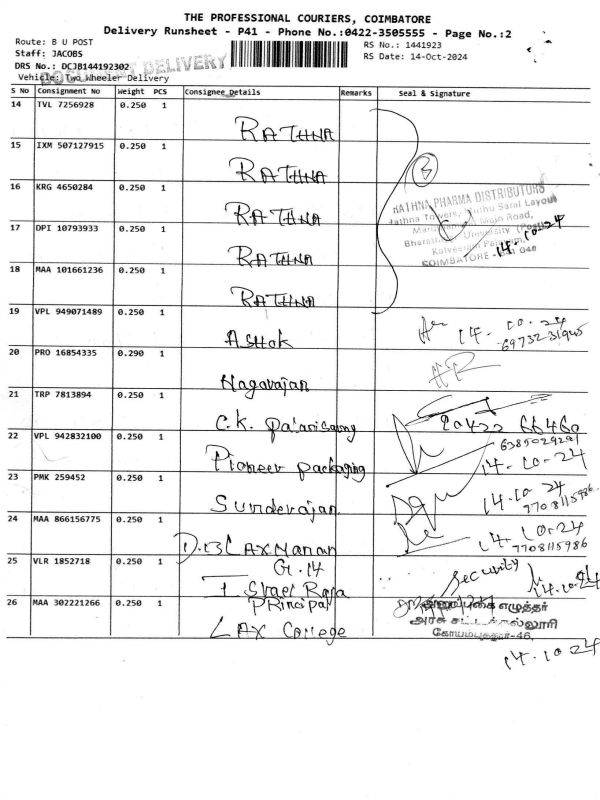 THE PROFESSIONAL COURIERS, COIMBATORE
Delivery Runsheet - P41 - Phone No.:0422-3505555 - Page No.:2
Route: B U POST
RS No.: 1441923
Staff: JACOBS
RS Date: 14-Oct-2024
DRS No.: DCJB144192302
DOCUMENT DELIVERY
Vehicle: Two Wheeler Delivery
S No Consignment No Weight PCS Consignee Details Remarks Seal & Signature
14 TVL 7256928 0.250 1 RATHNA
15 IXM 507127915 0.250 1 RATHNA
16 KRG 4650284 0.250 1 RATHNA
17 DPI 10793933 0.250 1 RATHNA
18 MAA 101661236 0.250 1 RATHNA
5
RATHNA PHARMA DISTRIBUTORS
Rathna Towers, Muthu Sarai Layout
Main Road,
University (Post)
COIMBATORE
14-10-24
19 VPL 949071489 0.250 1 Ashok 14-10-24
20 PRO 16854335 0.290 1 Nagarajan
21 TRP 7813894 0.250 1 C.K. 90422 66460
22 VPL 942832100 0.250 1 Pioneer packaging
14-10-24
23 PMK 259452 0.250 1 Sunderajan 14-10-24
7708115986
24 MAA 866156775 0.250 1 D.B LAXManan 14-10-24
7708115986
25 VLR 1852718 0.250 1 G.14 Security 14-10-24
I Srael Raja
26 MAA 302221266 0.250 1 PRincipal
எழுத்தர்
LAX College
அரசு சட்டக்கல்லூரி
கோயமுத்தூர்-46.
14-10-24